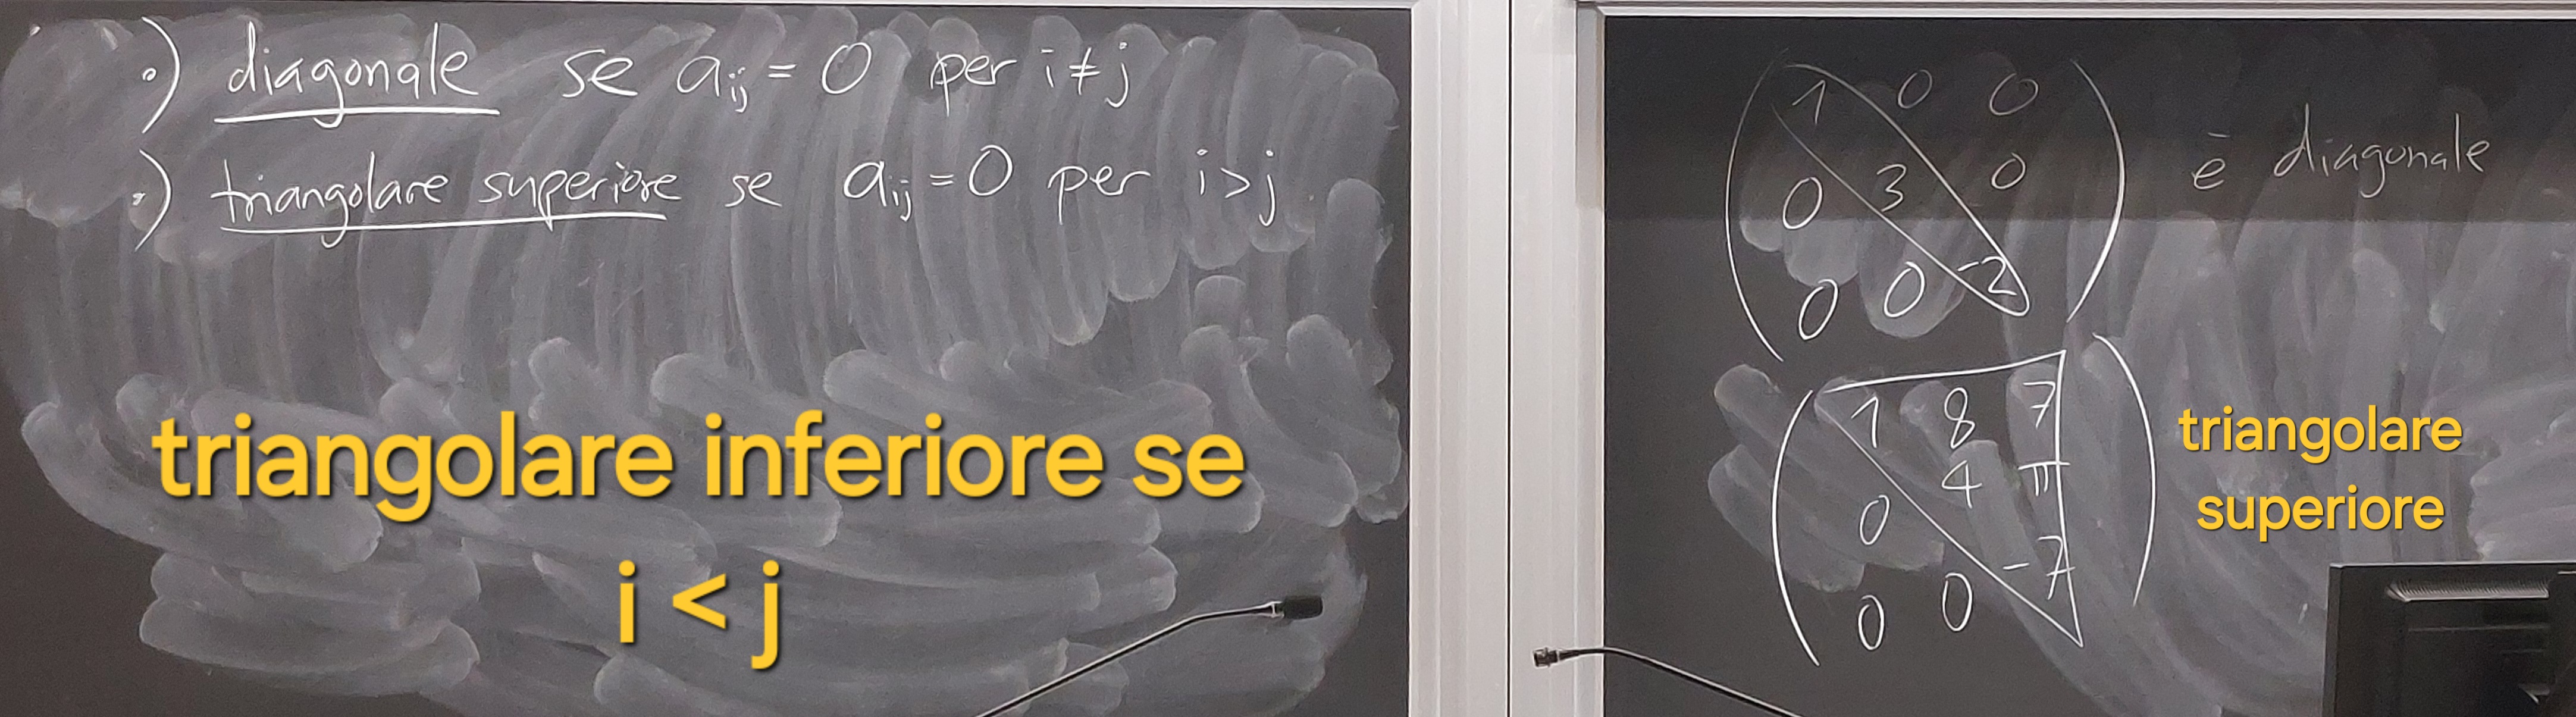 •) diagonale se aij = 0 per i ≠ j
•) triangolare superiore se aij = 0 per i > j
triangolare inferiore se
i < j
1 0 0
0 3 0
0 0 -2
è diagonale
1 8 7
0 4 π
0 0 -7
triangolare
superiore